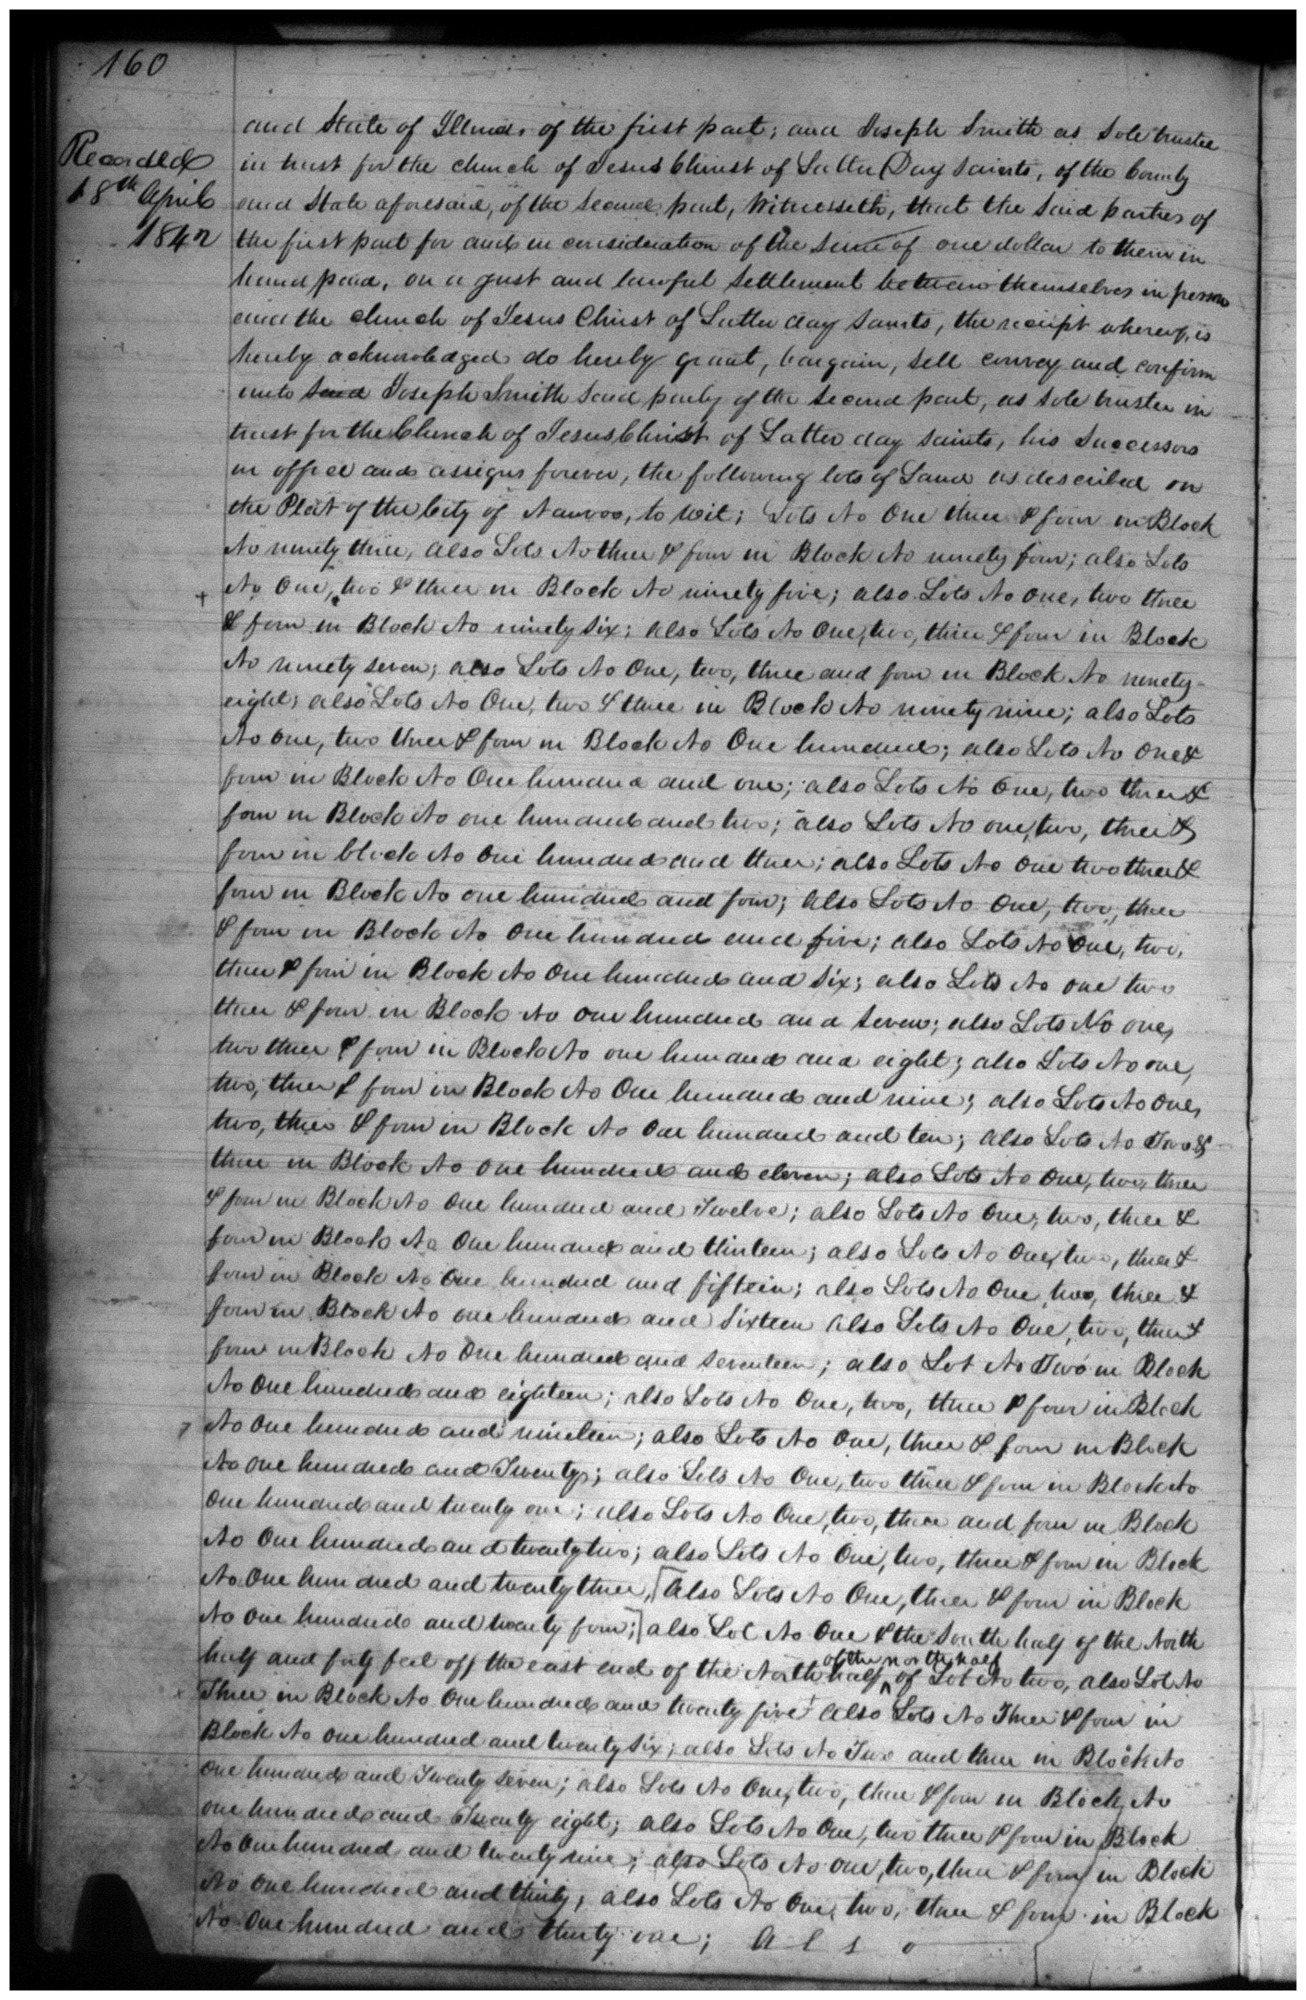 160
Recorded
18th April
1842
and State of Illinois of the first part; and Joseph Smith as Sole trustee
in trust for the church of Jesus Christ of Latter Day Saints, of the County
and State aforesaid, of the second part, Witnesseth, that the said parties of
the first part for and in consideration of the sum of one dollar to them in
hand paid, on a just and lawful settlement between themselves in person
and the church of Jesus Christ of Latter day Saints, the receipt whereof, is
hereby acknowledged do hereby grant, bargain, sell convey and confirm
unto said Joseph Smith said party of the second part, as sole trustee in
trust for the Church of Jesus Christ of Latter day saints, his Successors
in office and assigns forever, the following lots of Land as described on
the Plat of the City of Nauvoo, to wit; Lots No One three & four in Block
No ninety three, also Lots No three & four in Block No ninety four; also Lots
No One, two & three in Block No ninety five; also Lots No one, two three
& four in Block No ninety six; also Lots No One, two, three & four in Block
No ninety seven; also Lots No One, two, three and four in Block No ninety
eight; also Lots No One, two & three in Block No ninety nine; also Lots
No one, two three & four in Block No One hundred; also Lots No One &
four in Block No One hundred and one; also Lots No One, two three &
four in Block No one hundred and two; also Lots No one, two, three &
four in block No One hundred and three; also Lots No One two three &
four in Block No one hundred and four; also Lots No One, two, three
& four in Block No One hundred and five; also Lots No One, two,
three & four in Block No One hundred and six; also Lots No one two
three & four in Block No one hundred and seven; also Lots No one,
two three & four in Block No one hundred and eight; also Lots No one,
two, three & four in Block No One hundred and nine; also Lots No One,
two, three & four in Block No One hundred and ten; also Lots No Two &
three in Block No one hundred and eleven; also Lots No One, two, three
& four in Block No One hundred and Twelve; also Lots No One, two, three &
four in Block No One hundred and thirteen; also Lots No One, two, three &
four in Block No One hundred and fifteen; also Lots No One, two, three &
four in Block No one hundred and Sixteen also Lots No One, two, three &
four in Block No One hundred and seventeen; also Lot No Two in Block
No One hundred and eighteen; also Lots No One, two, three & four in Block
No One hundred and nineteen; also Lots No One, three & four in Block
No one hundred and Twenty; also Lots No One, two three & four in Block No
One hundred and twenty one; also Lots No One, two, three and four in Block
No One hundred and twenty two; also Lots No One, two, three & four in Block
No One hundred and twenty three, [also Lots No One, three & four in Block
No one hundred and twenty four;] also Lot No One & the South half of the North
half and fifty feet off the east end of the North half of the north half of Lot No two, also Lot No
Three in Block No One hundred and twenty five + also Lots No Three & four in
Block No one hundred and twenty six; also Lots No Two and three in Block No
One hundred and Twenty seven; also Lots No One, two, three & four in Block No
one hundred and Twenty eight; also Lots No One, two three & four in Block
No One hundred and twenty nine; also Lots No one, two, three & four in Block
No One hundred and thirty; also Lots No One, two, three & four in Block
No One hundred and thirty one; also